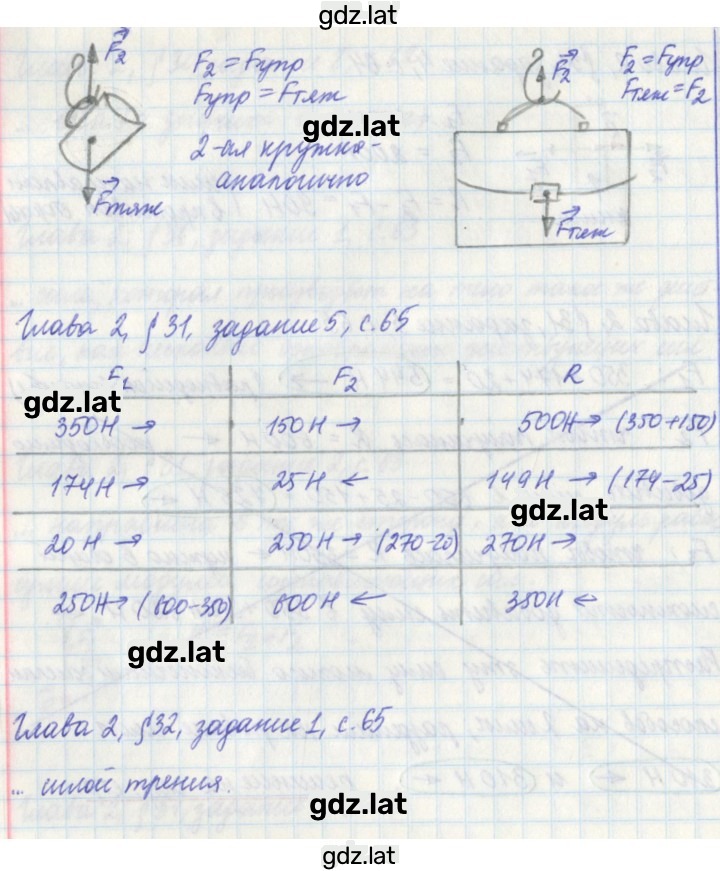 gdz.lat
F₂
F₂ = Fупр
Fупр = Fтяж
gdz.lat
2-ая кружка-
аналогично
Fтяж
F₂
F₂ = Fупр
Fтяж = F₂
Fтяж
Глава 2, § 31, задание 5, с. 65
F₁ F₂ R
gdz.lat
350Н → 150Н → 500Н → (350+150)
174Н → 25Н ← 149Н → (174-25)
gdz.lat
20 Н → 250Н → (270-20) 270Н →
250Н → (600-350) 600Н ← 350Н ←
gdz.lat
Глава 2, § 32, задание 1, с. 65
... силой трения.
gdz.lat
gdz.lat